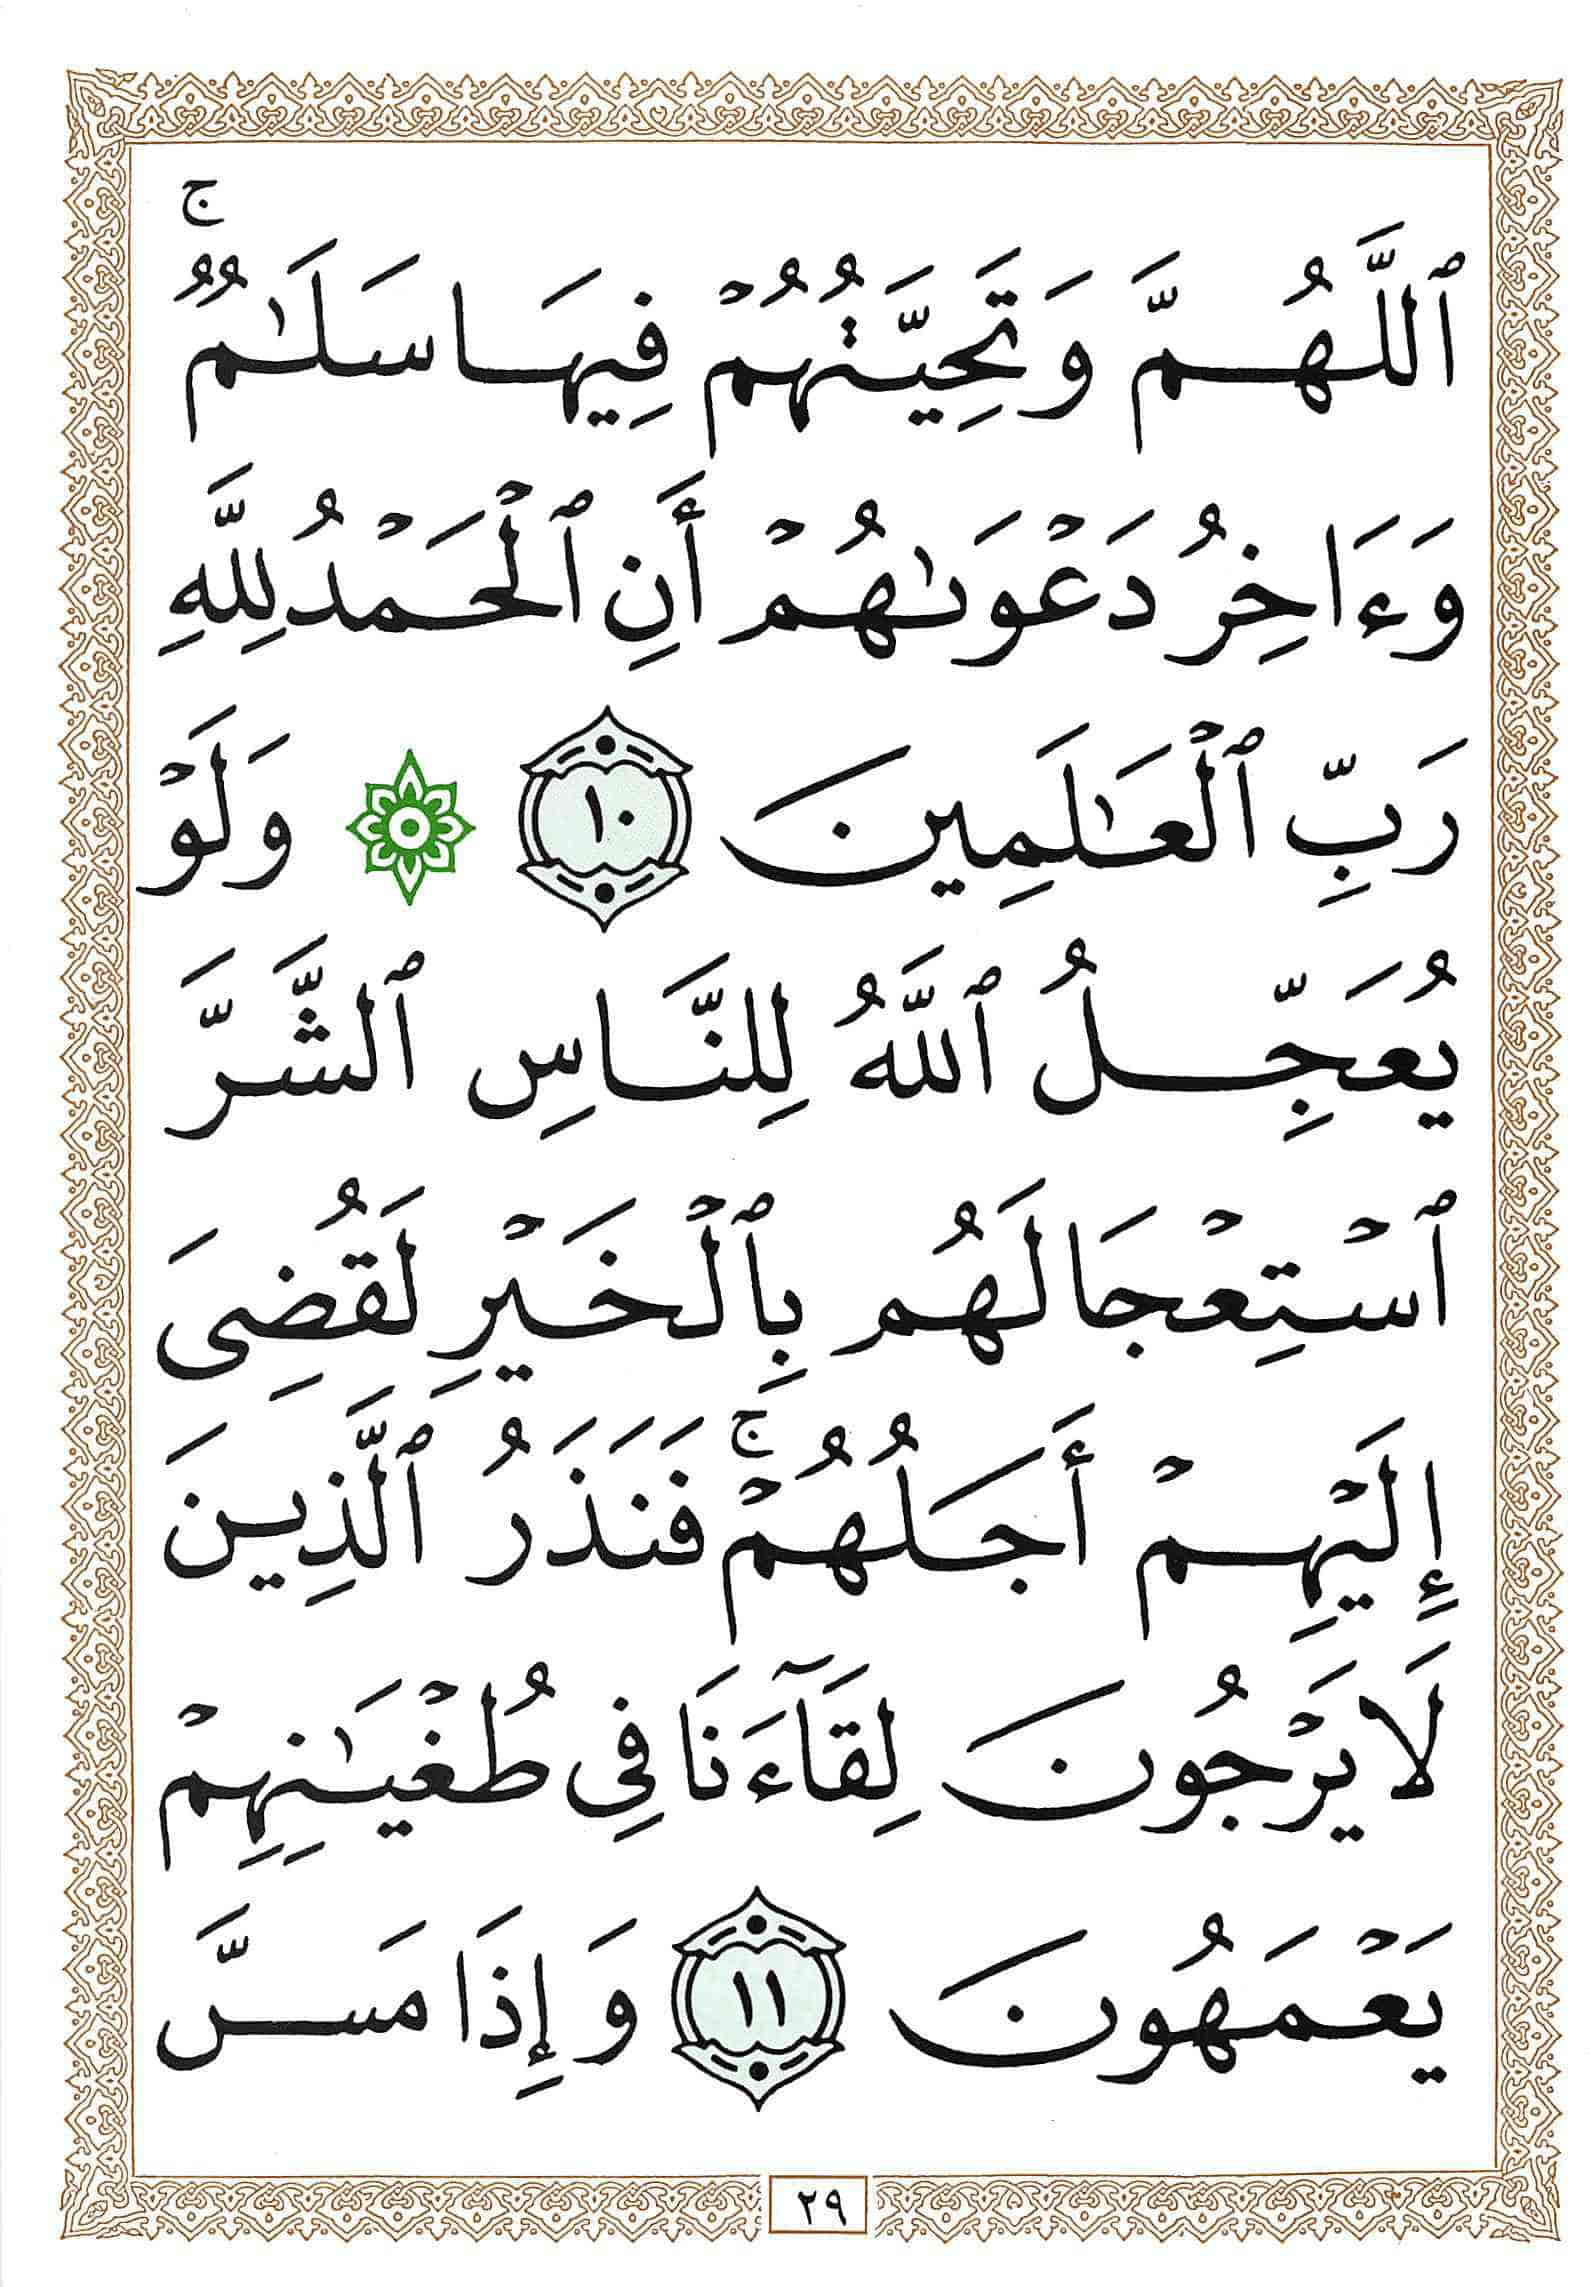 ٱللَّهُمَّ وَتَحِيَّتُهُمْ فِيهَا سَلَـٰمٌ ۚ
وَءَاخِرُ دَعْوَىٰهُمْ أَنِ ٱلْحَمْدُ لِلَّهِ
رَبِّ ٱلْعَـٰلَمِينَ ١٠ ۞ وَلَوْ
يُعَجِّلُ ٱللَّهُ لِلنَّاسِ ٱلشَّرَّ
ٱسْتِعْجَالَهُم بِٱلْخَيْرِ لَقُضِىَ
إِلَيْهِمْ أَجَلُهُمْ ۚ فَنَذَرُ ٱلَّذِينَ
لَا يَرْجُونَ لِقَآءَنَا فِى طُغْيَـٰنِهِمْ
يَعْمَهُونَ ١١ وَإِذَا مَسَّ
٢٩